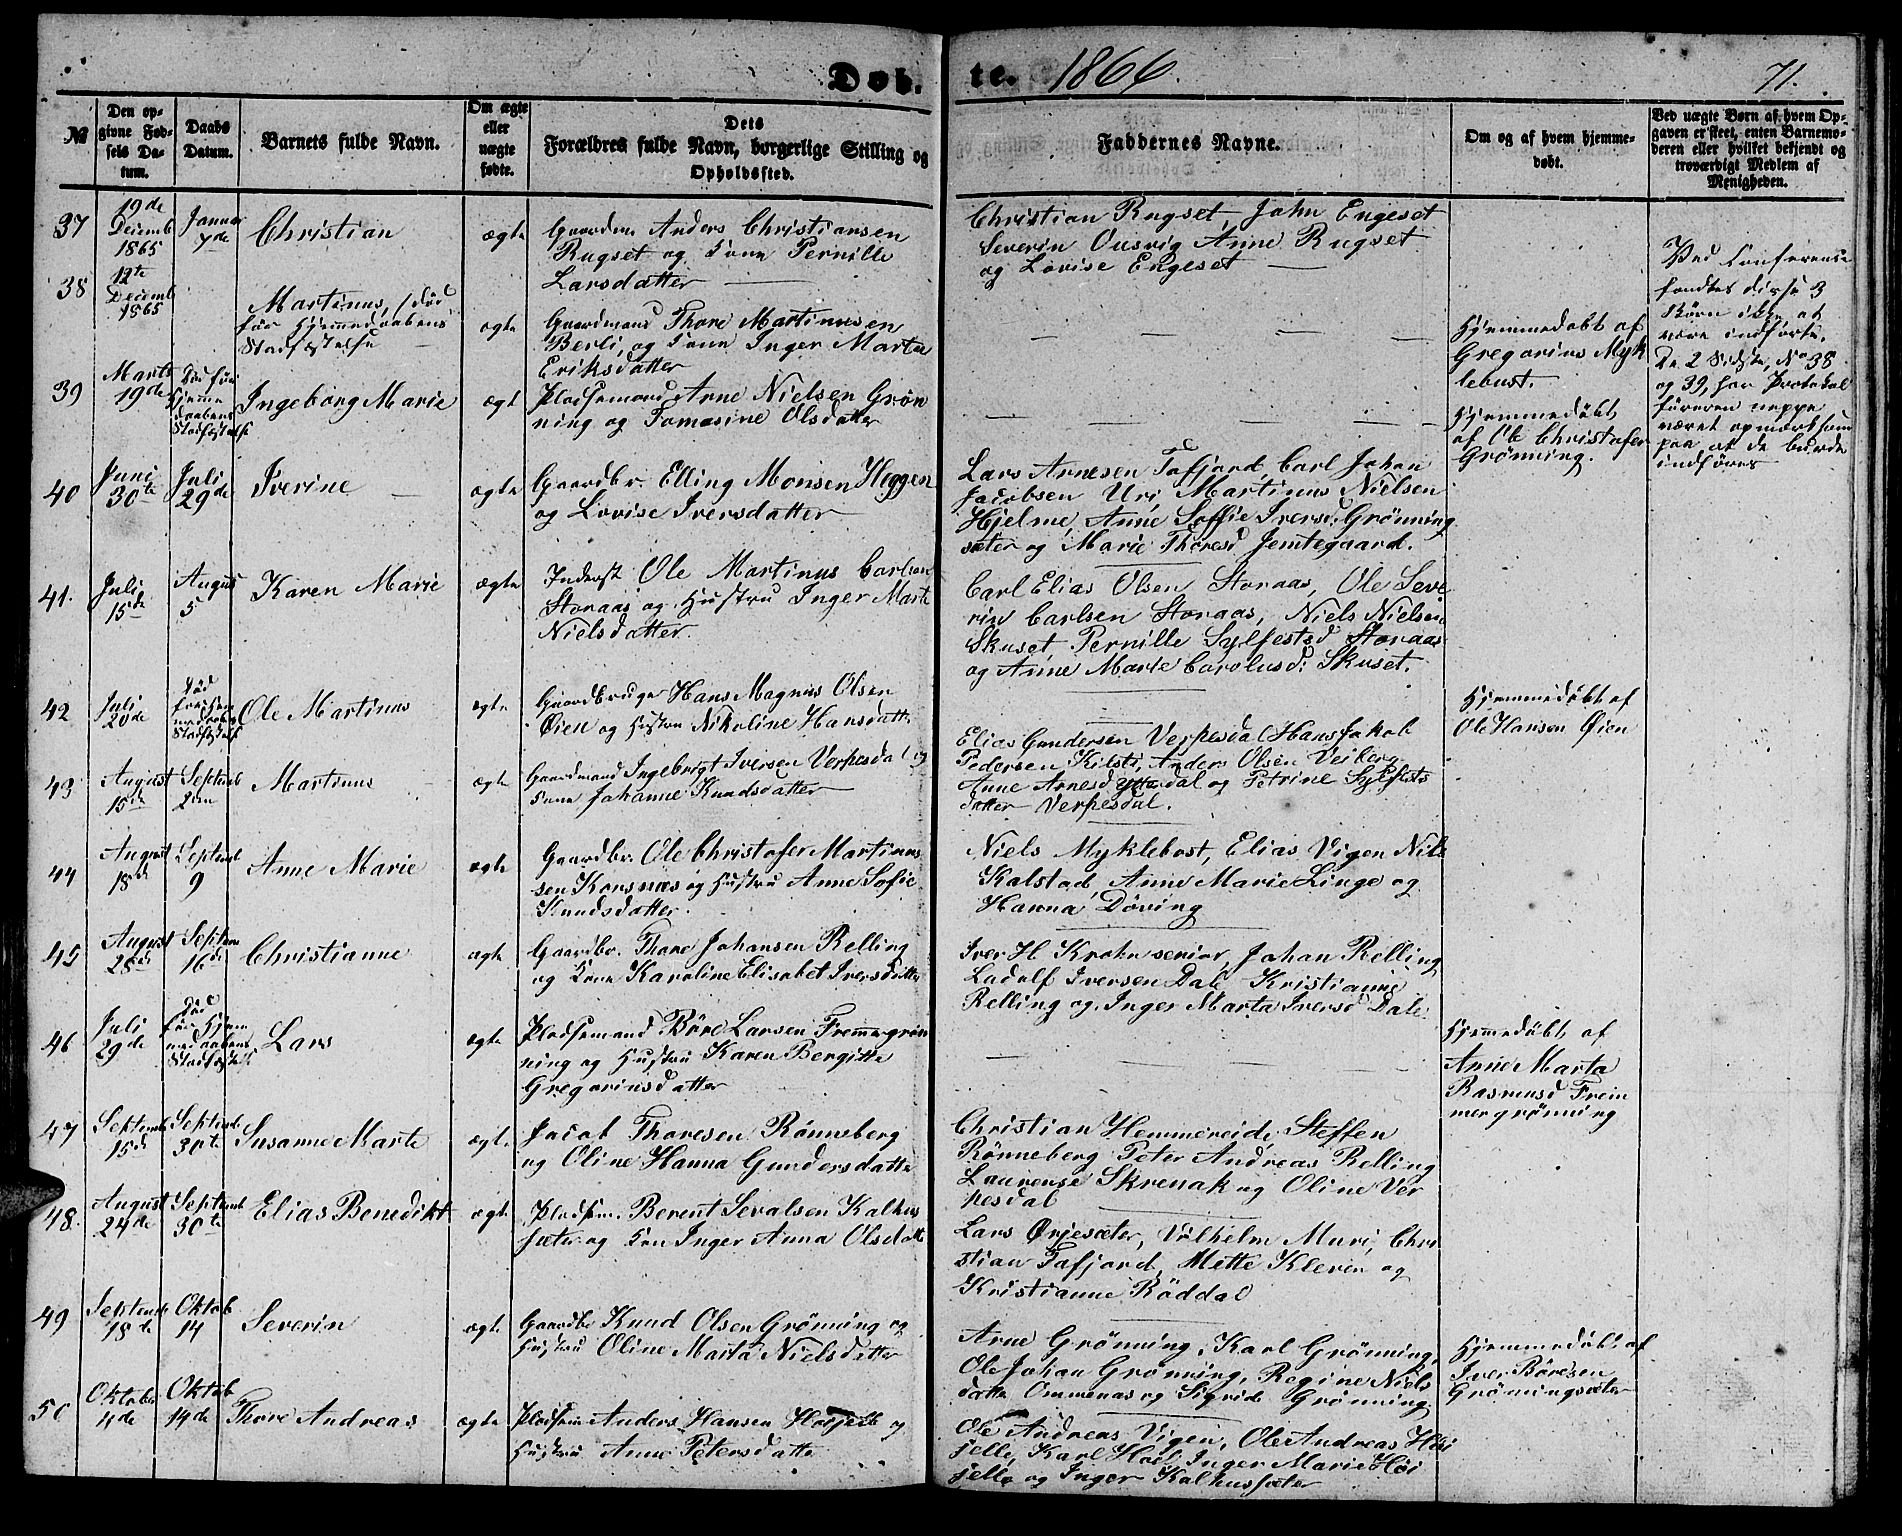 Døb.
te. 1866.
71.
№
Den op-
givne Fød-
sels Da-
tum.
Daabs
Datum.
Barnets fulde Navn.
Om ægte
eller
uægte
fødte.
Dets
Forældres fulde Navn, borgerlige Stilling og
Opholdssted.
Faddernes Navne.
Om og af hvem hjemme-
døbt.
Ved uægte Børn af hvem Op-
gaven er skeet, enten Barnemo-
deren eller hvilket bekjendt og
troværdigt Medlem af
Menigheden.
37
19de
Decemb
1865
Januar
7de
Christian
ægte
Gaardm. Anders Christiansen
Rugset og Kone Pernille
Larsdatter
Christian Rugset, John Engeset
Severin Ousvig Anne Rugset
og Lovise Engeset
38
12te
Decemb
1865
Martinus, /død
før Hjemmedaabens
Stadfæstelse
ægte
Gaardmand Thore Martinusen
Berli, og Kone Inger Marta
Eriksdatter
Hjemmedøbt af
Gregorius Myk
lebust.
Ved Conferense
fandtes disse 3
Børn ikke at
være indførte.
De 2 Sidste, No 38
og 39, har Protokol
føreren neppe
været opmærksom
paa at de burde
indføres
39
Marts
19de
Død før
Hjemme
daabens
Stadfæstelse
Ingeborg Marie
ægte
Pladsemand Arne Nielsen Grøn
ning og Tomasine Olsdatter
Hjemmedøbt
af Ole Christofer
Grønning.
40
Juni
30te
Juli
29de
Iverine
ægte
Gaardbr. Elling Monsen Heggen
og Lovise Iversdatter
Lars Arnesen Tafjord, Carl Johan
Jacobsen Uri Martinus Nielsen
Hjelme, Anne Soffie Iversd. Grønning
sæter og Marie Thoresd Jemtegaard.
41.
Juli
15de
August
5
Karen Marie
ægte
Inderst Ole Martinus Carlsen
Storaas og Hustru Inger Marte
Nielsdatter.
Carl Elias Olsen Storaas, Ole Seve
rin Carlsen Storaas, Niels Nielsen
Skuset Pernille Sylfestsd Storaas
og Anne Marie Carolusd: Skuset.
42
Juli
20de
Død
før Hjem
medaabens
Stadfæstelse
Ole Martinus
ægte
Gaardbruger Hans Magnus Olsen
Øien og Hustru Nikoline Hansdatter
Hjemmedøbt af
Ole Hansen Øien
43
August
15de
Septemb
2den
Martinus
ægte
Gaardmand Ingebrigt Iversen Verpesdal og
Kone Johanne Knudsdatter
Elias Gundersen Verpesdal Hans Jakob
Pedersen Kilsti, Anders Olsen Veiberg
Anne Arnesd Yttedal og Petrine Sylfests
datter Verpesdal.
44
August
18de
Septemb
9
Anne Marie
ægte
Gaardbr. Ole Christofer Martinus
sen Korsnæs og Hustru Anne Sofie
Knudsdatter.
Niels Myklebost, Elias Vigen Nils
Kalstad, Anne Marie Linge og
Hanna Døving
45
August
28de
Septem
16de
Christianne
ægte
Gaardbr. Thore Johansen Relling
og Kone Karoline Elisabet Iversdatter
Iver H Krohn senior, Johan Relling
Ladolf Iversen Dale Kristianne
Relling og, Inger Marta Iversd Dale.
46
Juli
29de
Død
før Hjem
medaabens
Stadfæstelse
Lars
ægte
Pladsemand Børe Larsen Fremmergrøn
ning og Hustru Karen Bergitte
Gregoriusdatter
Hjemmedøbt af
Anne Marta
Rasmusd Frem
mergrønning
47
Septemb
15de
Septemb
30te
Susanne Marte
ægte
Jacob Thoresen Rønneberg
og Oline Hanna Gundersdatter
Christian Hemmereide Steffen
Rønneberg Peter Andreas Relling
Laurense Skrenak og Oline Ver
pesdal
48.
August
24de
Septemb
30te
Elias Benedikt
ægte
Pladsm. Berent Sevalsen Kalhus
sæter og Kone Inger Anna Olsdatter
Lars Ørjesæter, Vilhelm Muri, Chri
stian Tafjord, Mette Kleven og
Kristianne Røddal
49
Septemb
18de
Oktob
14
Severin
ægte
Gaardbr Knud Olsen Grønning og
Hustru Oline Marta Nielsdatter
Arne Grønning, Karl Grønning,
Ole Johan Grønning, Regine Niels
datter Ommenas og Sigride Grønning
Hjemmedøbt af
Iver Børesen
Grønningsæter
50
Oktober
4de
Oktob
14de
Thore Andreas
ægte
Pladsem Anders Hansen Høijelle og
Hustru Anne Petersdatter
Ole Andreas Vigen, Ole Andreas Høi
jelle, Karl Hoel, Inger Marie Høi
jelle og Inger Kalhussæter